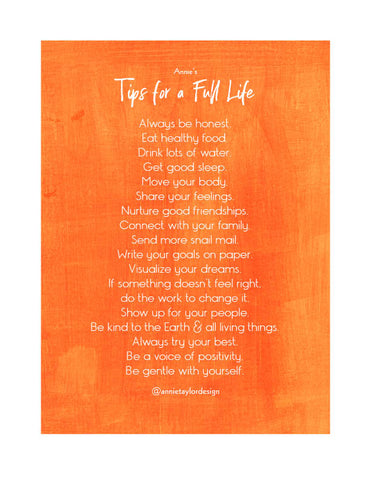 Annie's
Tips for a Full Life
Always be honest.
Eat healthy food.
Drink lots of water.
Get good sleep.
Move your body.
Share your feelings.
Nurture good friendships.
Connect with your family.
Send more snail mail.
Write your goals on paper.
Visualize your dreams.
If something doesn't feel right,
do the work to change it.
Show up for your people.
Be kind to the Earth & all living things.
Always try your best.
Be a voice of positivity.
Be gentle with yourself.
@annietaylordesign